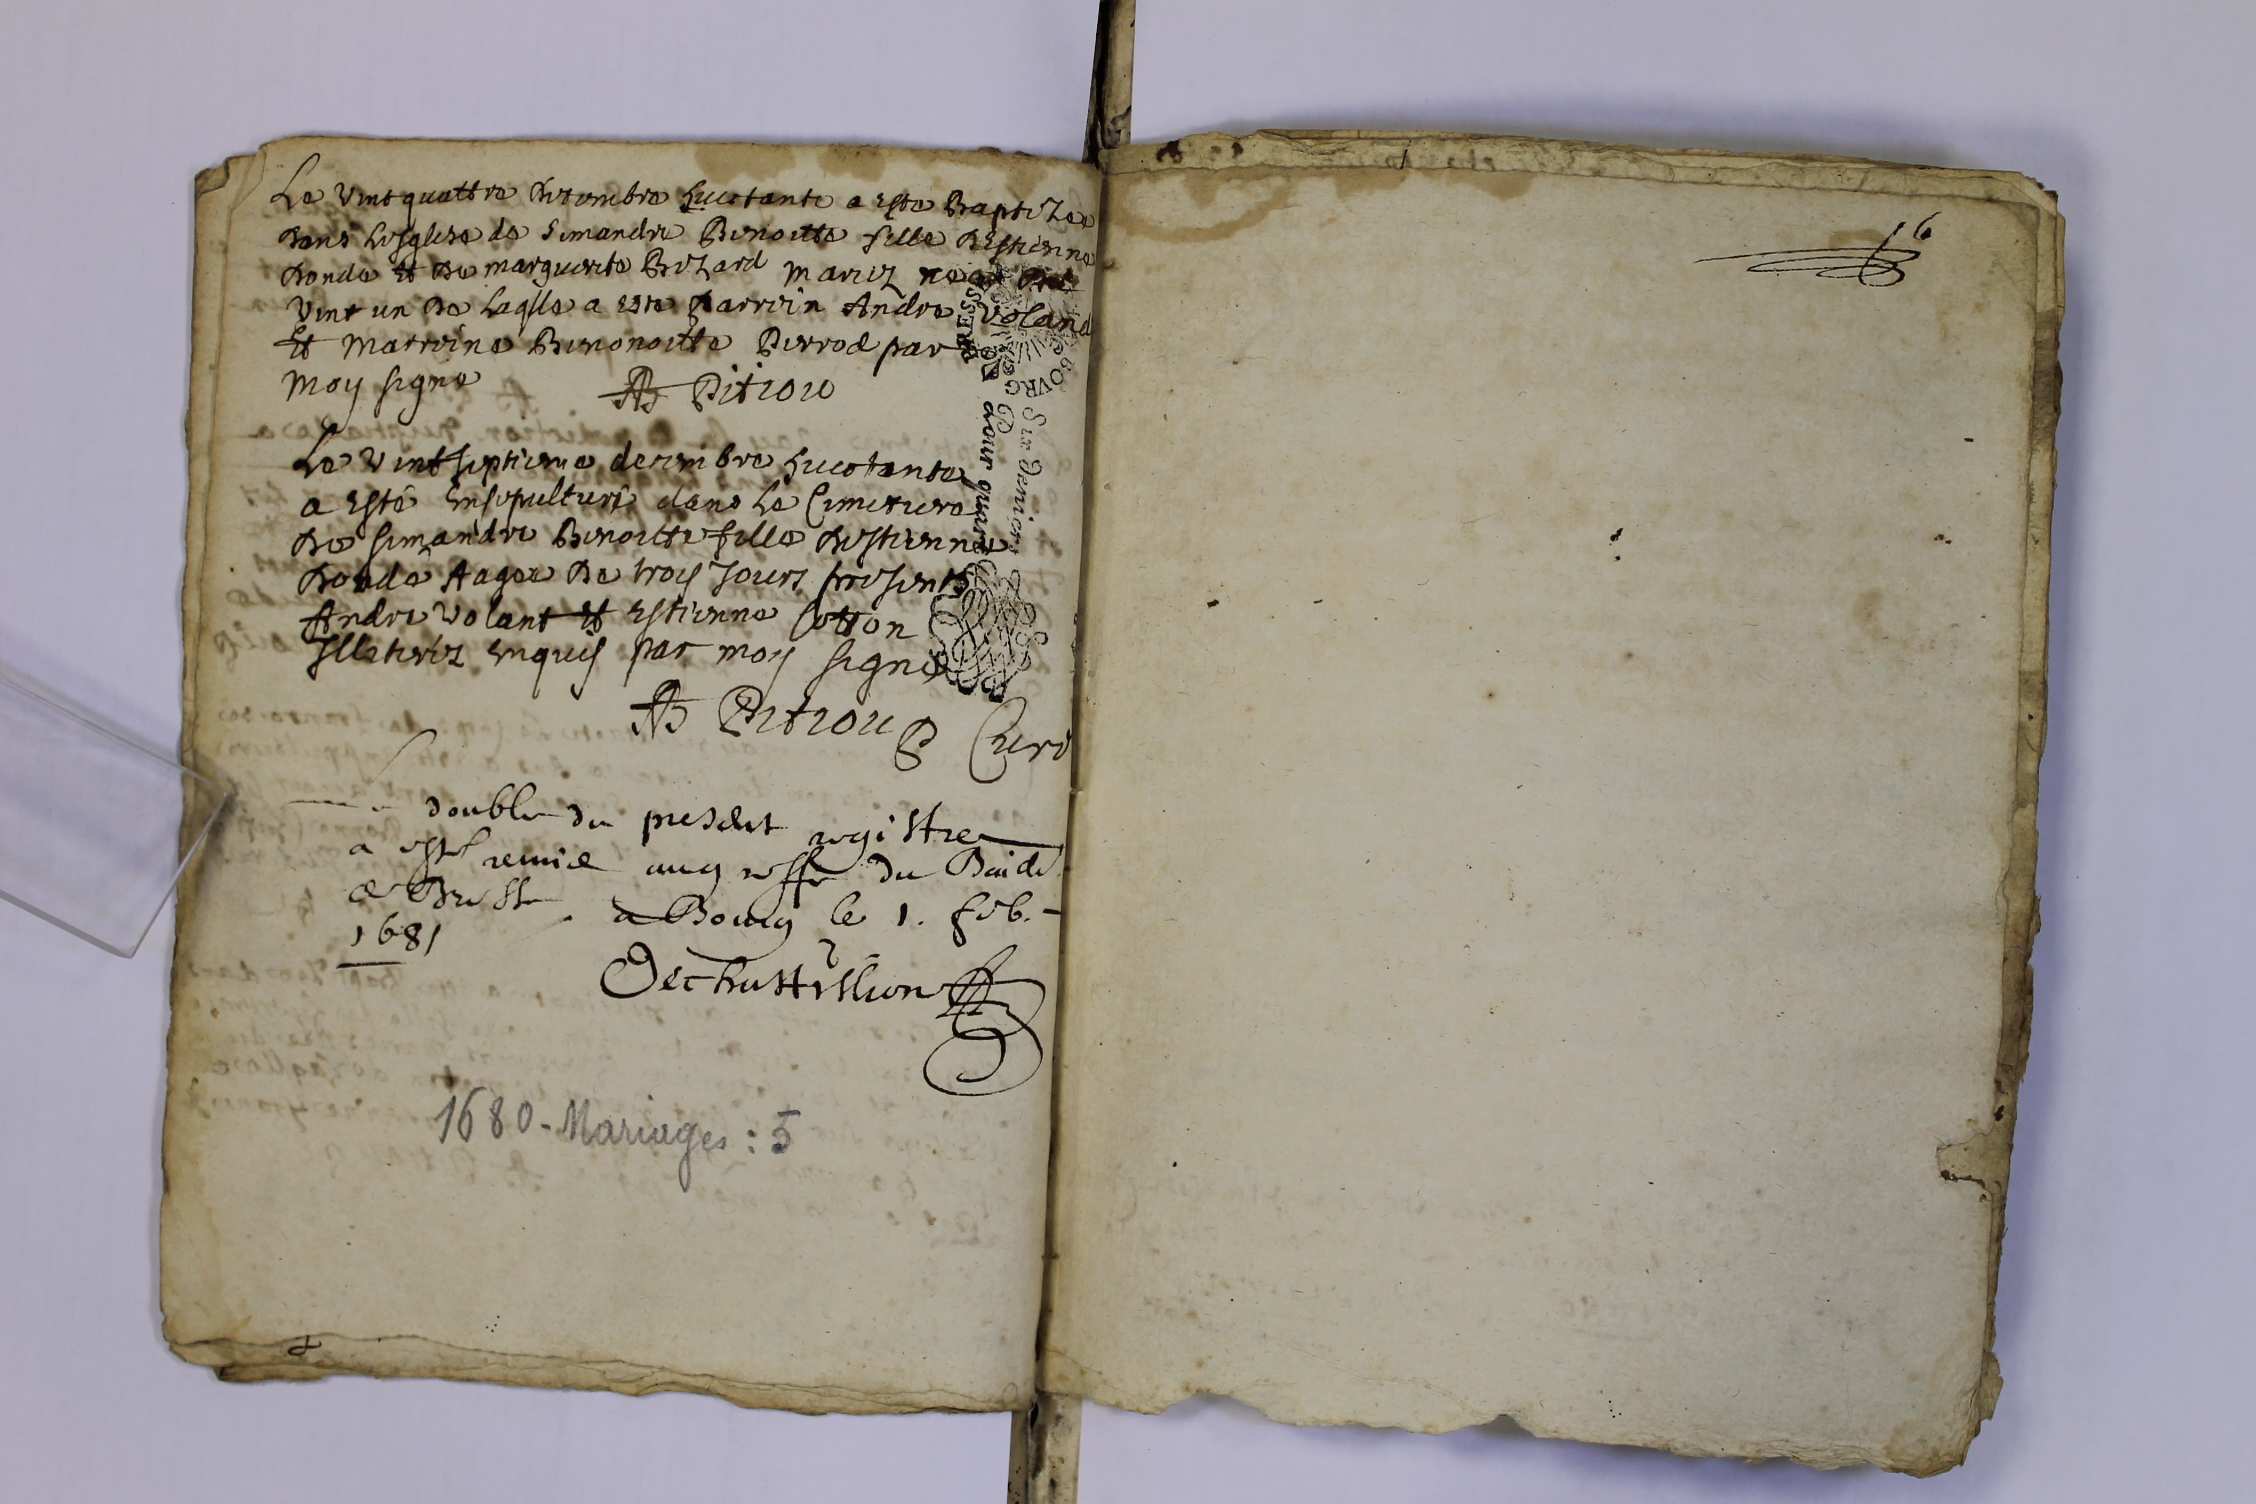 Le vint quattre decembre huictante a este Baptizee
dans Lesglise de Simandre Benoitte fille destienne
donde et de marguerite Bizard mariez nee
vint un de laqlle a este parrein Andre voland
et marreine Benonoitte Perrod par
moy signe A Pitiou
Le vint septieme decembre huictante
a esté ensepulturé dans Le Cimetiere
de simandre Benoitte fille destienne
donde Aagee de trois jours presents
Andre volant et Estienne Cotton
Illeterez enquis par moy signe
A Pitiou Curé
double du present registre
a esté remise au greffe du Baile
de Bresse a Bourg le 1. feb.
1681
Dechattillion
1680 - Mariages : 5
BRESSE
BOVRG
Six deniers
pour quart
16